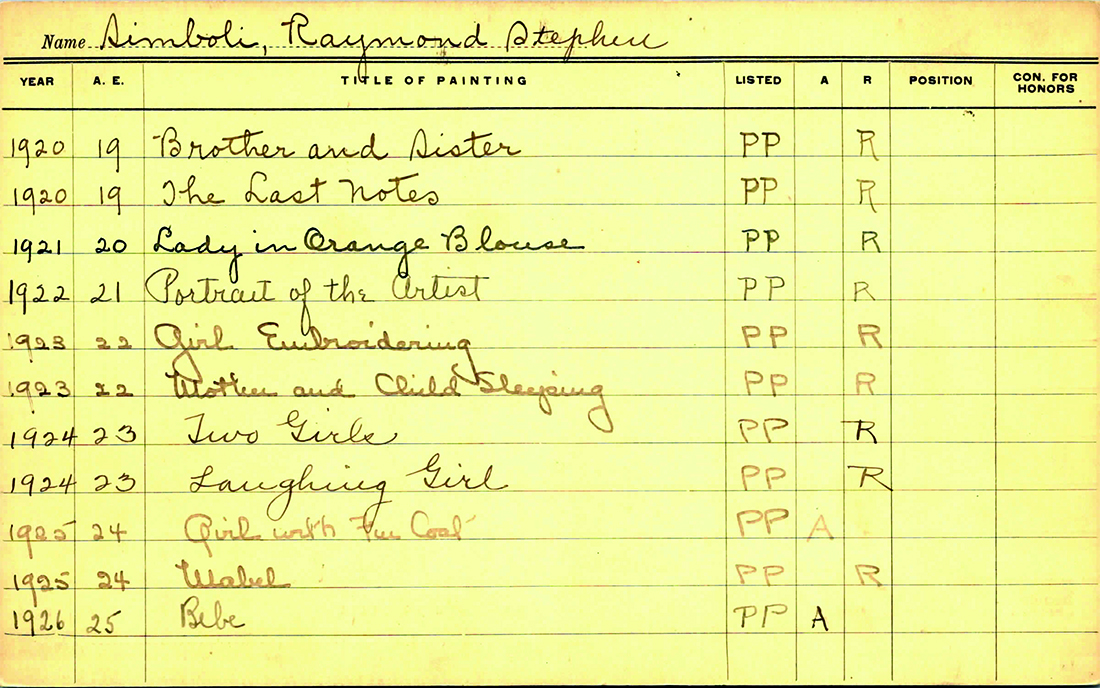 Name Simboli, Raymond Stephen
YEAR A. E. TITLE OF PAINTING LISTED A R POSITION CON. FOR HONORS
1920 19 Brother and Sister PP R
1920 19 The Last Notes PP R
1921 20 Lady in Orange Blouse PP R
1922 21 Portrait of the Artist PP R
1923 22 Girl Embroidering PP R
1923 22 Mother and Child Sleeping PP R
1924 23 Two Girls PP R
1924 23 Laughing Girl PP R
1925 24 Girl with Fur Coat PP A
1925 24 Mabel PP R
1926 25 Bebe PP A